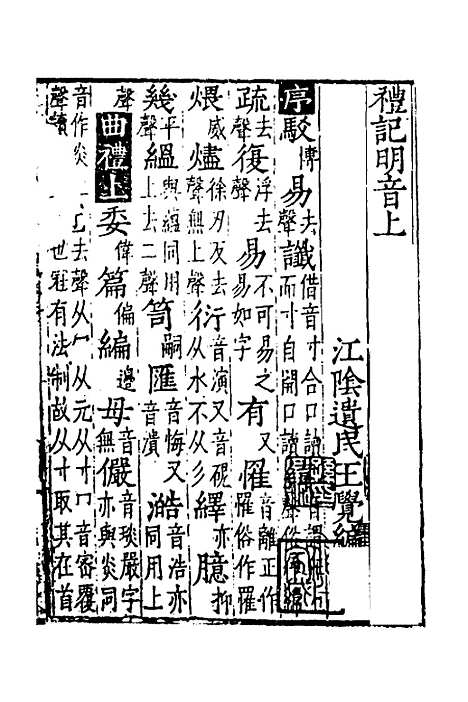 禮記明音上
江陰遺民王覺編
序 駁博 易去聲 讖借音寸合口讀 而寸自開口讀
疏去聲 復浮去聲 易不可易之易如字 有又 罹音離正作罹俗作罹
煨威 燼徐刃反去聲無上聲 衍音演又音硯从水不从彡 繹亦 臆抑
幾平聲 縕與蘊同用上去二聲 笥嗣 匯音悔又音潰 澔音浩亦同用上
聲 曲禮上 委偉 篇偏 編邊 毋音無 儼音琰嚴字亦與炎同
音作炎 去聲从冖从元从寸冖音密覆
聲讀 世冠有法制故从寸取其在首